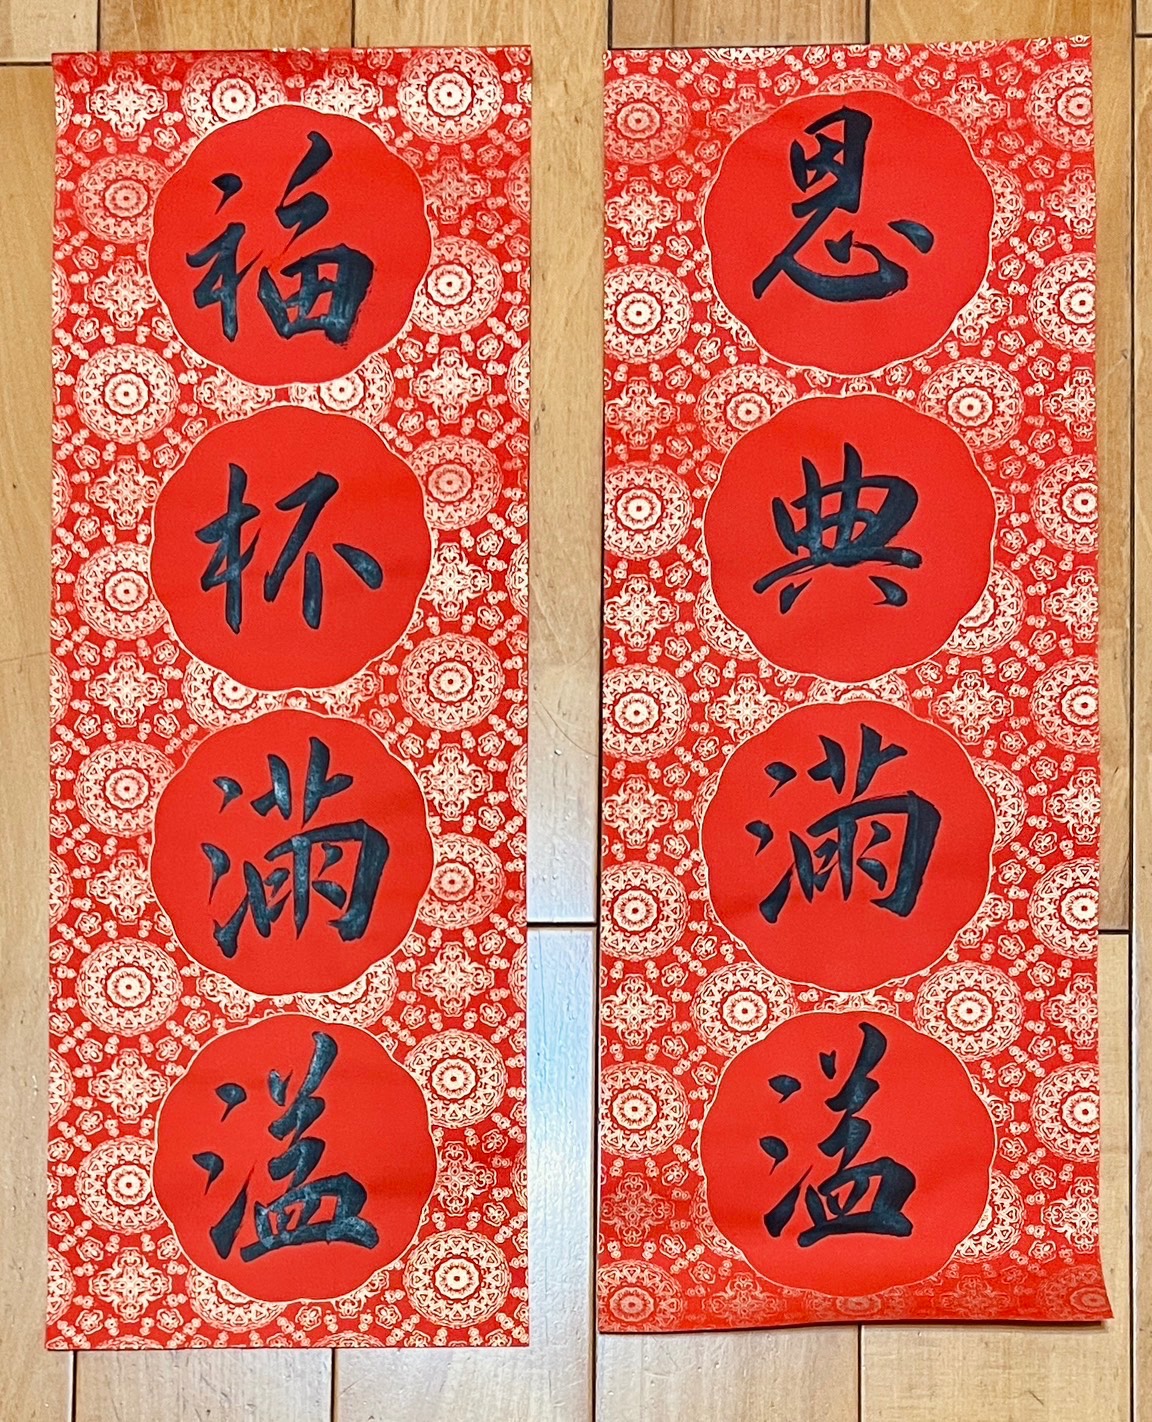 恩典滿溢
福杯滿溢